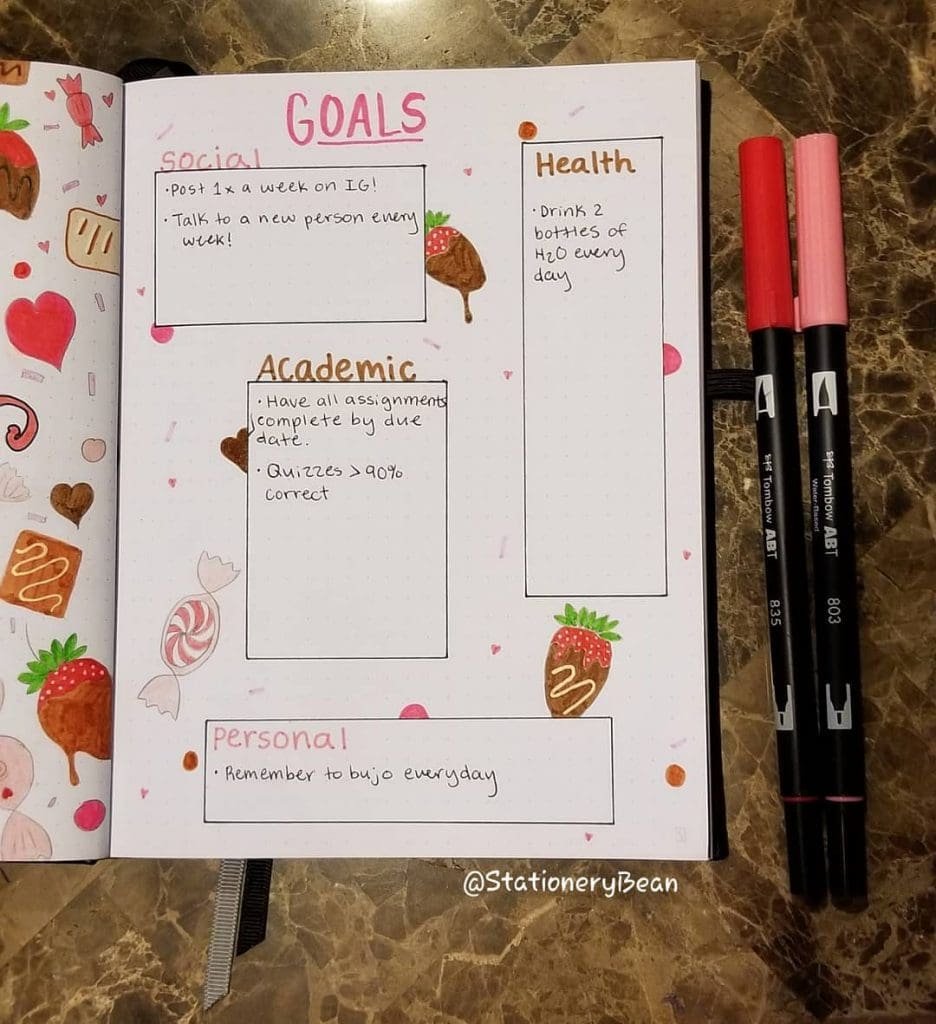 GOALS
Social
• Post 1x a week on IG!
• Talk to a new person every
week!
Health
• Drink 2
bottles of
H2O every
day
Academic
• Have all assignments
complete by due
date.
• Quizzes > 90%
correct
Personal
• Remember to bujo everyday
@StationeryBean
Tombow ABT
835
Tombow ABT
Water-Based
803